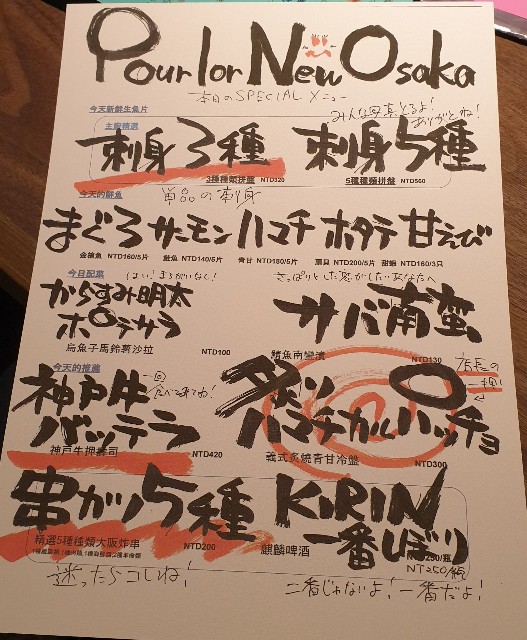 Pour lor New Osaka
本日のSPECIALメニュー
みんな写真とるよ!
ありがとね!
今天新鮮生魚片
主廚精選
刺身3種 刺身5種
3種種類拼盤 NTD320 5種種類拼盤 NTD560
今天的鮮魚 単品の刺身
まぐろ サーモン ハマチ ホタテ 甘えび
金槍魚 NTD160/5片 鮭魚 NTD140/5片 青甘 NTD180/5片 扇貝 NTD200/5片 甜蝦 NTD160/3只
今日配菜 はい!まちがいなし! さっぱりとした感がしたいあなたへ
からすみ明太
ポテサラ
サバ南蛮
烏魚子馬鈴薯沙拉 NTD100 鯖魚南蠻漬 NTD130
今天的推薦
神戸牛
バッテラ
一回
食べてみてね!
神戸牛押壽司 NTD420
店長の
一押し
炙り
ハマチカルパッチョ
義式炙燒青甘冷盤 NTD300
串カツ5種
精選5種種類大阪炸串
NTD200
KIRIN
一番しぼり
麒麟啤酒 NTD250/瓶
NT250/瓶
迷ったらコレね!
二番じゃないよ!一番だよ!